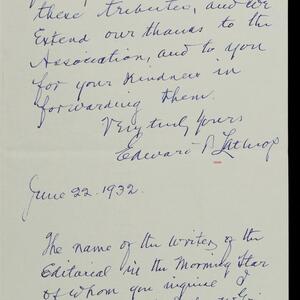 these tributes, and we
Extend our thanks to the
Association, and to you
for your kindness in
forwarding them.
Very truly yours
Edward B Lathrop
June 22. 1932.
The name of the Writer, of the
Editorial in the Morning Star
of whom you inquire I